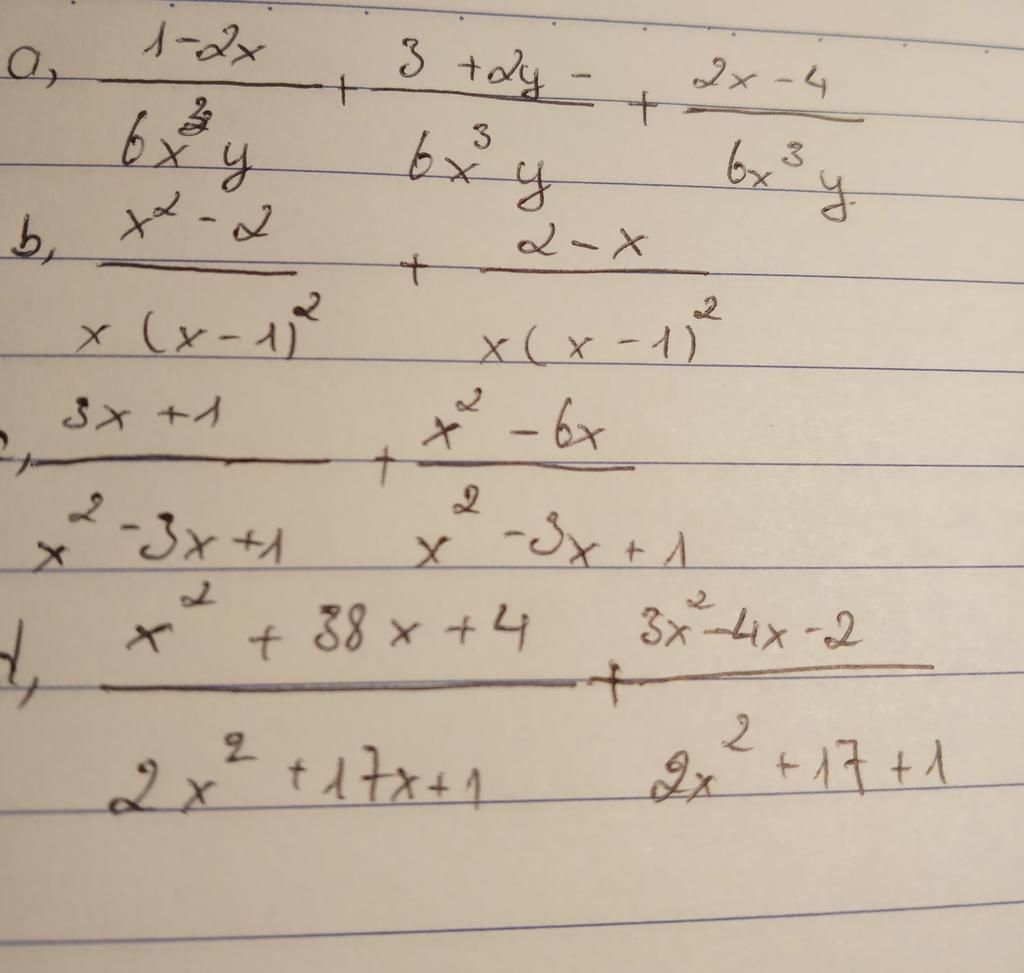 a, 1-2x/6x³y + 3+2y-/6x³y + 2x-4/6x³y
b, x²-2/x(x-1)² + 2-x/x(x-1)²
, 3x+1/x²-3x+1 + x²-6x/x²-3x+1
d, x²+38x+4/2x²+17x+1 + 3x²-4x-2/2x²+17+1